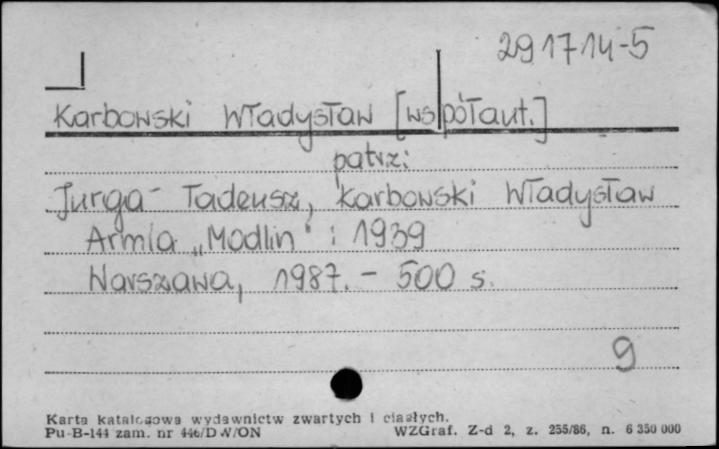 291714-5
Karbowski Władysław [współaut.]
patrz:
Jurga Tadeusz, Karbowski Władysław
Armia „Modlin" : 1939
Warszawa, 1987. – 500 s.
9
Karta katalogowa wydawnictw zwartych i ciągłych.
Pu-B-144 zam. nr 446/DW/ON WZGraf. Z-d 2, z. 255/86, n. 6 350 000